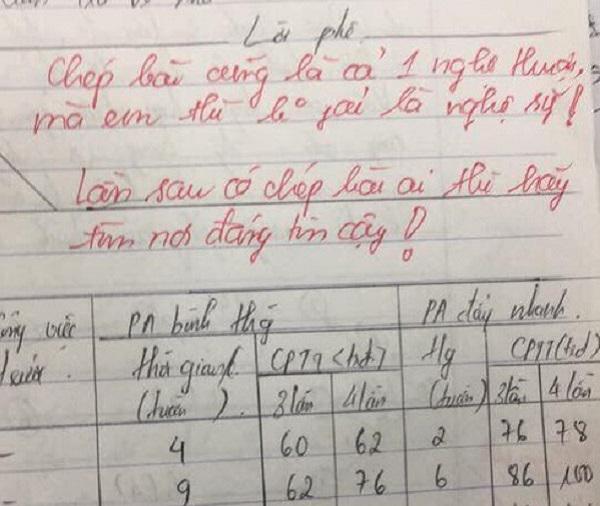 Lời phê
Chép bài cũng là cả 1 nghệ thuật,
mà em thì k° fải là nghệ sỹ!
Lần sau có chép bài ai thì hãy
tìm nơi đáng tin cậy!
việc PA bình thg PA đẩy nhanh.
thời gian CPTT (trđ) tg CPTT (trđ)
(tuần) 3 lần 4 lần (tuần) 3 lần 4 lần
- 4 60 62 2 76 78
- 9 62 76 6 86 100